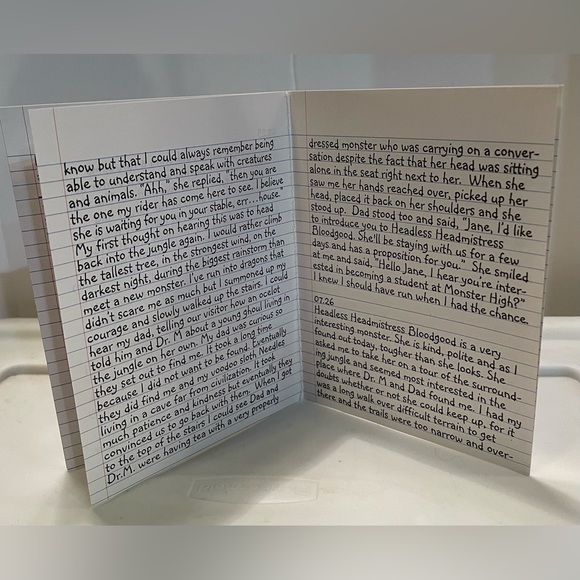 know but that I could always remember being
able to understand and speak with creatures
and animals. "Ahh," she replied, "then you are
the one my rider has come here to see. I believe
she is waiting for you in your stable, err...house."
My first thought on hearing this was to head
back into the jungle again. I would rather climb
the tallest tree, in the strongest wind, on the
darkest night, during the biggest rainstorm than
meet a new monster. I've run into dragons that
didn't scare me as much but I summoned up my
courage and slowly walked up the stairs. I could
hear my dad, telling our visitor how an ocelot
told him and Dr. M about a young ghoul living in
the jungle on her own. My dad was curious so
they set out to find me. It took a long time
because I did not want to be found. Eventually
they did find me and my voodoo sloth Needles
living in a cave far from civilization. It took
much patience and kindness but eventually they
convinced us to go back with them. When I got
to the top of the stairs I could see Dad and
Dr.M. were having tea with a very properly
dressed monster who was carrying on a conver-
sation despite the fact that her head was sitting
alone in the seat right next to her. When she
saw me her hands reached over, picked up her
head, placed it back on her shoulders and she
stood up. Dad stood too and said, "Jane, I'd like
to introduce you to Headless Headmistress
Bloodgood. She'll be staying with us for a few
days and has a proposition for you." She smiled
at me and said, "Hello Jane, I hear you're inter-
ested in becoming a student at Monster High?"
I knew I should have run when I had the chance.
07.26
Headless Headmistress Bloodgood is a very
interesting monster. She is kind, polite and as I
found out today, tougher than she looks. She
asked me to take her on a tour of the surround-
ing jungle and seemed most interested in the
place where Dr. M and Dad found me. I had my
doubts whether or not she could keep up, for it
was a long walk over difficult terrain to get
there and the trails were too narrow and over-